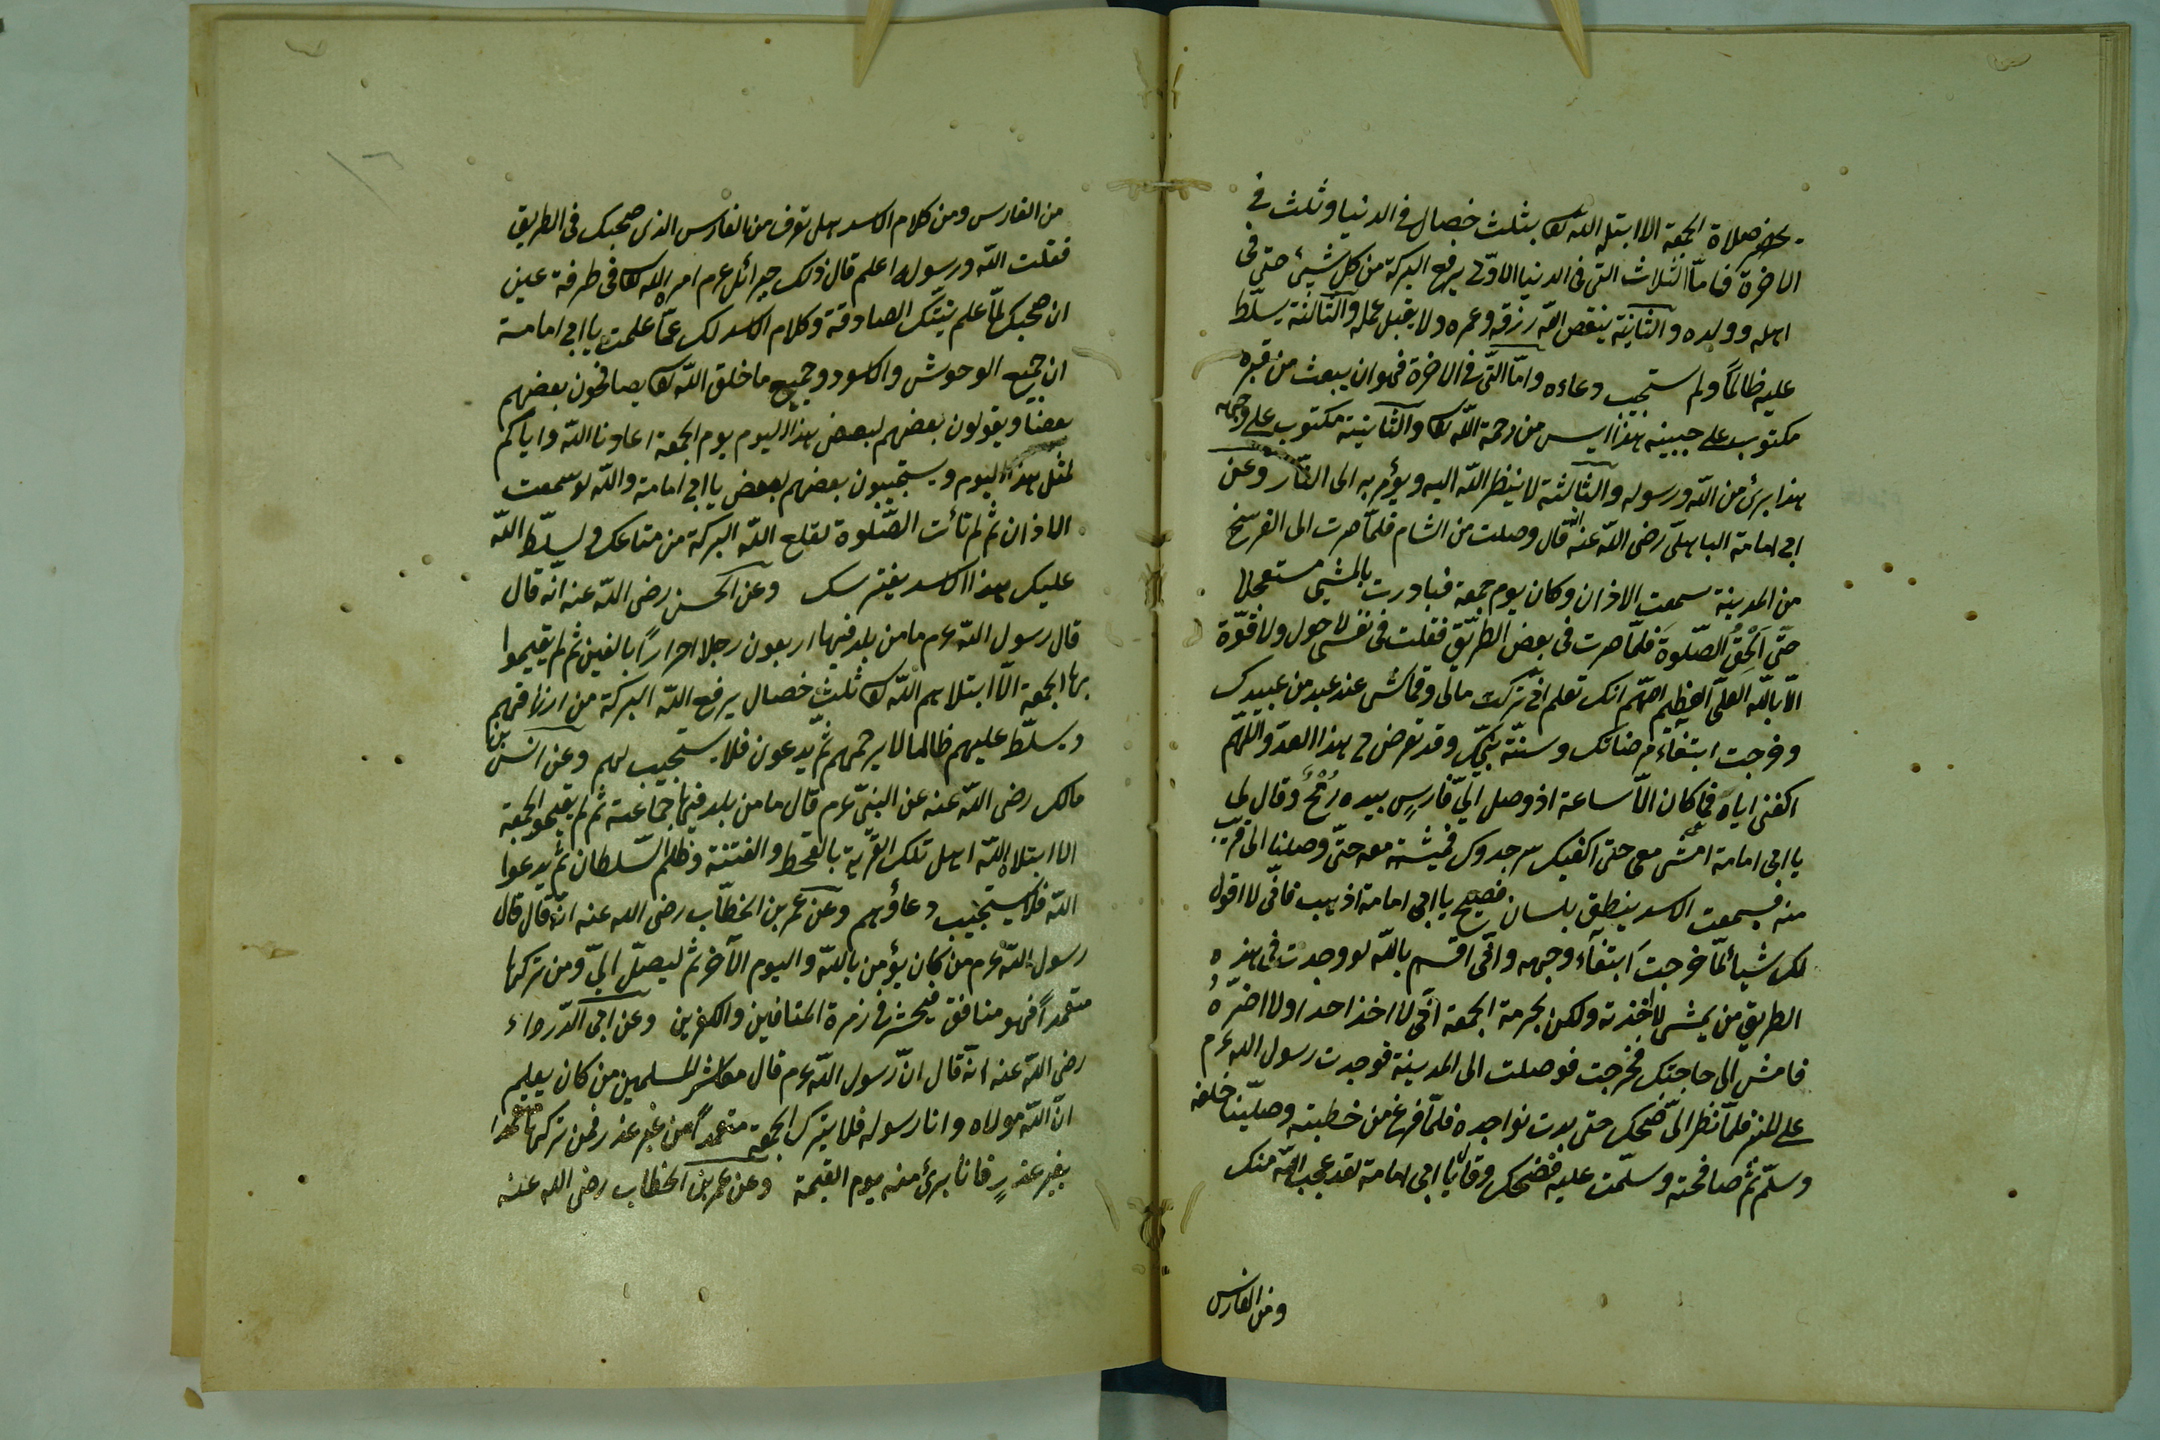 يحضر صلاة الجمعة الا ابتلاه الله تعالى بثلث خصال في الدنيا وثلث في
الاخرة فامّا الثلاث التى فى الدنيا الاوّلى يرفع البركة من كل شيئ حتى فى
اهله وولده والثانية ينقص الله رزقه وعمره ولا يقبل عمله والثالثة يسلّط
عليه ظالماً ولم يستجب دعاءه وامّا التّى في الاخرة فهو ان يبعث من قبره
مكتوب على جبينه هذا ايس من رحمة الله تعالى والثانية مكتوب على وجهه
هذا برئ من الله ورسوله والثالثة لا ينظر الله اليه ويؤمر به الى النّار وعن
ابى امامة الباهلّى رضى الله عنه انّه قال وصلت من الشام فلمّا صرت الى الفرسخ
من المدينة سمعت الاذان وكان يوم جمعة فبادرت بالمشى مستعجلا
حتّى اَلْحَقُ الصّلوة فلمّا صرت فى بعض الطريق فقلت فى نفسى لا حول ولا قوّة
الّا بالله العلّى العظيم اللهمّ انك تعلم انّى تركت مالى وقماشى عند عبد من عبيدك
وخرجت ابتغاء مرضاتك وسنّة نبيّك وقد تعرض لى هذا العدوّ اللهمّ
اكفنى اياه فما كان الّا ساعة اذ وصل الىّ فارسٍ بيده رُمْحٌ وقال لى
يا ابى امامة امش معى حتى اكفيك سر عدوك فمشيت معه حتّى وصلنا الى قريب
منه فسمعت الاسد ينطق بلسان فصيح يا ابى امامة اذهب فانّى لا اقول
لك شيأ لمّا خرجت ابتغاء وجهه وانّى اقسم بالله لو وجدت فى هذه
الطريق من يمشى لاخذته ولكن بحرمة الجمعة انّى لا اخذ احدا ولا اضرّهُ
فامش الى حاجتك فخرجت فوصلت الى المدينة فوجدت رسول الله عم
على المنبر فلمّا نظر الىّ ضحك حتى بدت نواجده فلمّا فرغ من خطبته وصلّينا خلفه
وسلّم ثم صافحته وسلّمت عليه فضحك وقال يا ابى امامة لقد عجب الله منك
ومن الفارس
من الفارس ومن كلام الاسد هل تعرف من الفارس الذى صحبك فى الطريق
فقلت الله ورسوله اعلم قال ذلك جبرائل عم امره الله تعالى فى طرفة عين
ان صحبك لمّا علم نيتّك الصادقة وكلام الاسد لك عمّا علمت يا ابى امامة
ان جميع الوحوش والاسود وجميع ما خلق الله تعالى يصافحون بعضهم
بعضا ويقولون بعضهم لبعض هذا اليوم يوم الجمعة اعادنا الله واياكم
لمثل هذا اليوم ويستجيبون بعضهم لبعض يا ابى امامة والله لو سمعت
الاذان ثم لم تأت الصّلوة لقلع الله البركة من متاعك ويسلّط الله
عليك هذا الاسد يفترسك وعن الحسن رضى الله عنه انّه قال
قال رسول الله عم ما من بلد فيها اربعون رجلا احراراً بالغين ثم لم يقيموا
بها الجمعة الّا ابتلاهم الله تعالى ثلث خصال يرفع الله البركة من ارزاقهم
ويسلّط عليهم ظالما لا يرحمهم ثم يدعون فلا يستجيب لهم وعن انس بن
مالك رضى الله عنه عن النبىّ عم قال ما من بلد فيها جماعة ثم لم يقيمو الجمعة
الا ابتلاه الله اهل تلك القرية بالقحط والفتنة وظلم السّلطان ثم يدعوا
الله فلا يستجيب دعاؤهم وعن عمر بن الخطّاب رضى الله عنه انّه قال قال
رسول الله عم من كان يؤمن بالله واليوم الآخر ثم ليصلّ الىّ ومن تركها
متعمداً فهو منافق فيحشر فى زمرة المنافين والكفرين وعن ابى الدّرداء
رضى الله عنه انّه قال انّ رسول الله عم قال معاشر المسلمين من كان يعلم
انّ الله مولاه وانا رسوله فلا يترك الجمعة متعمداً من غير عذر فمن تركها متعمدا
بغير عذرٍ فانا برئ منه يوم القيمة وعن عمر بن الخطاب رضى الله عنه